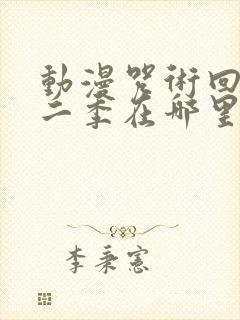 動漫咒術回
二季在哪里
李秉憲